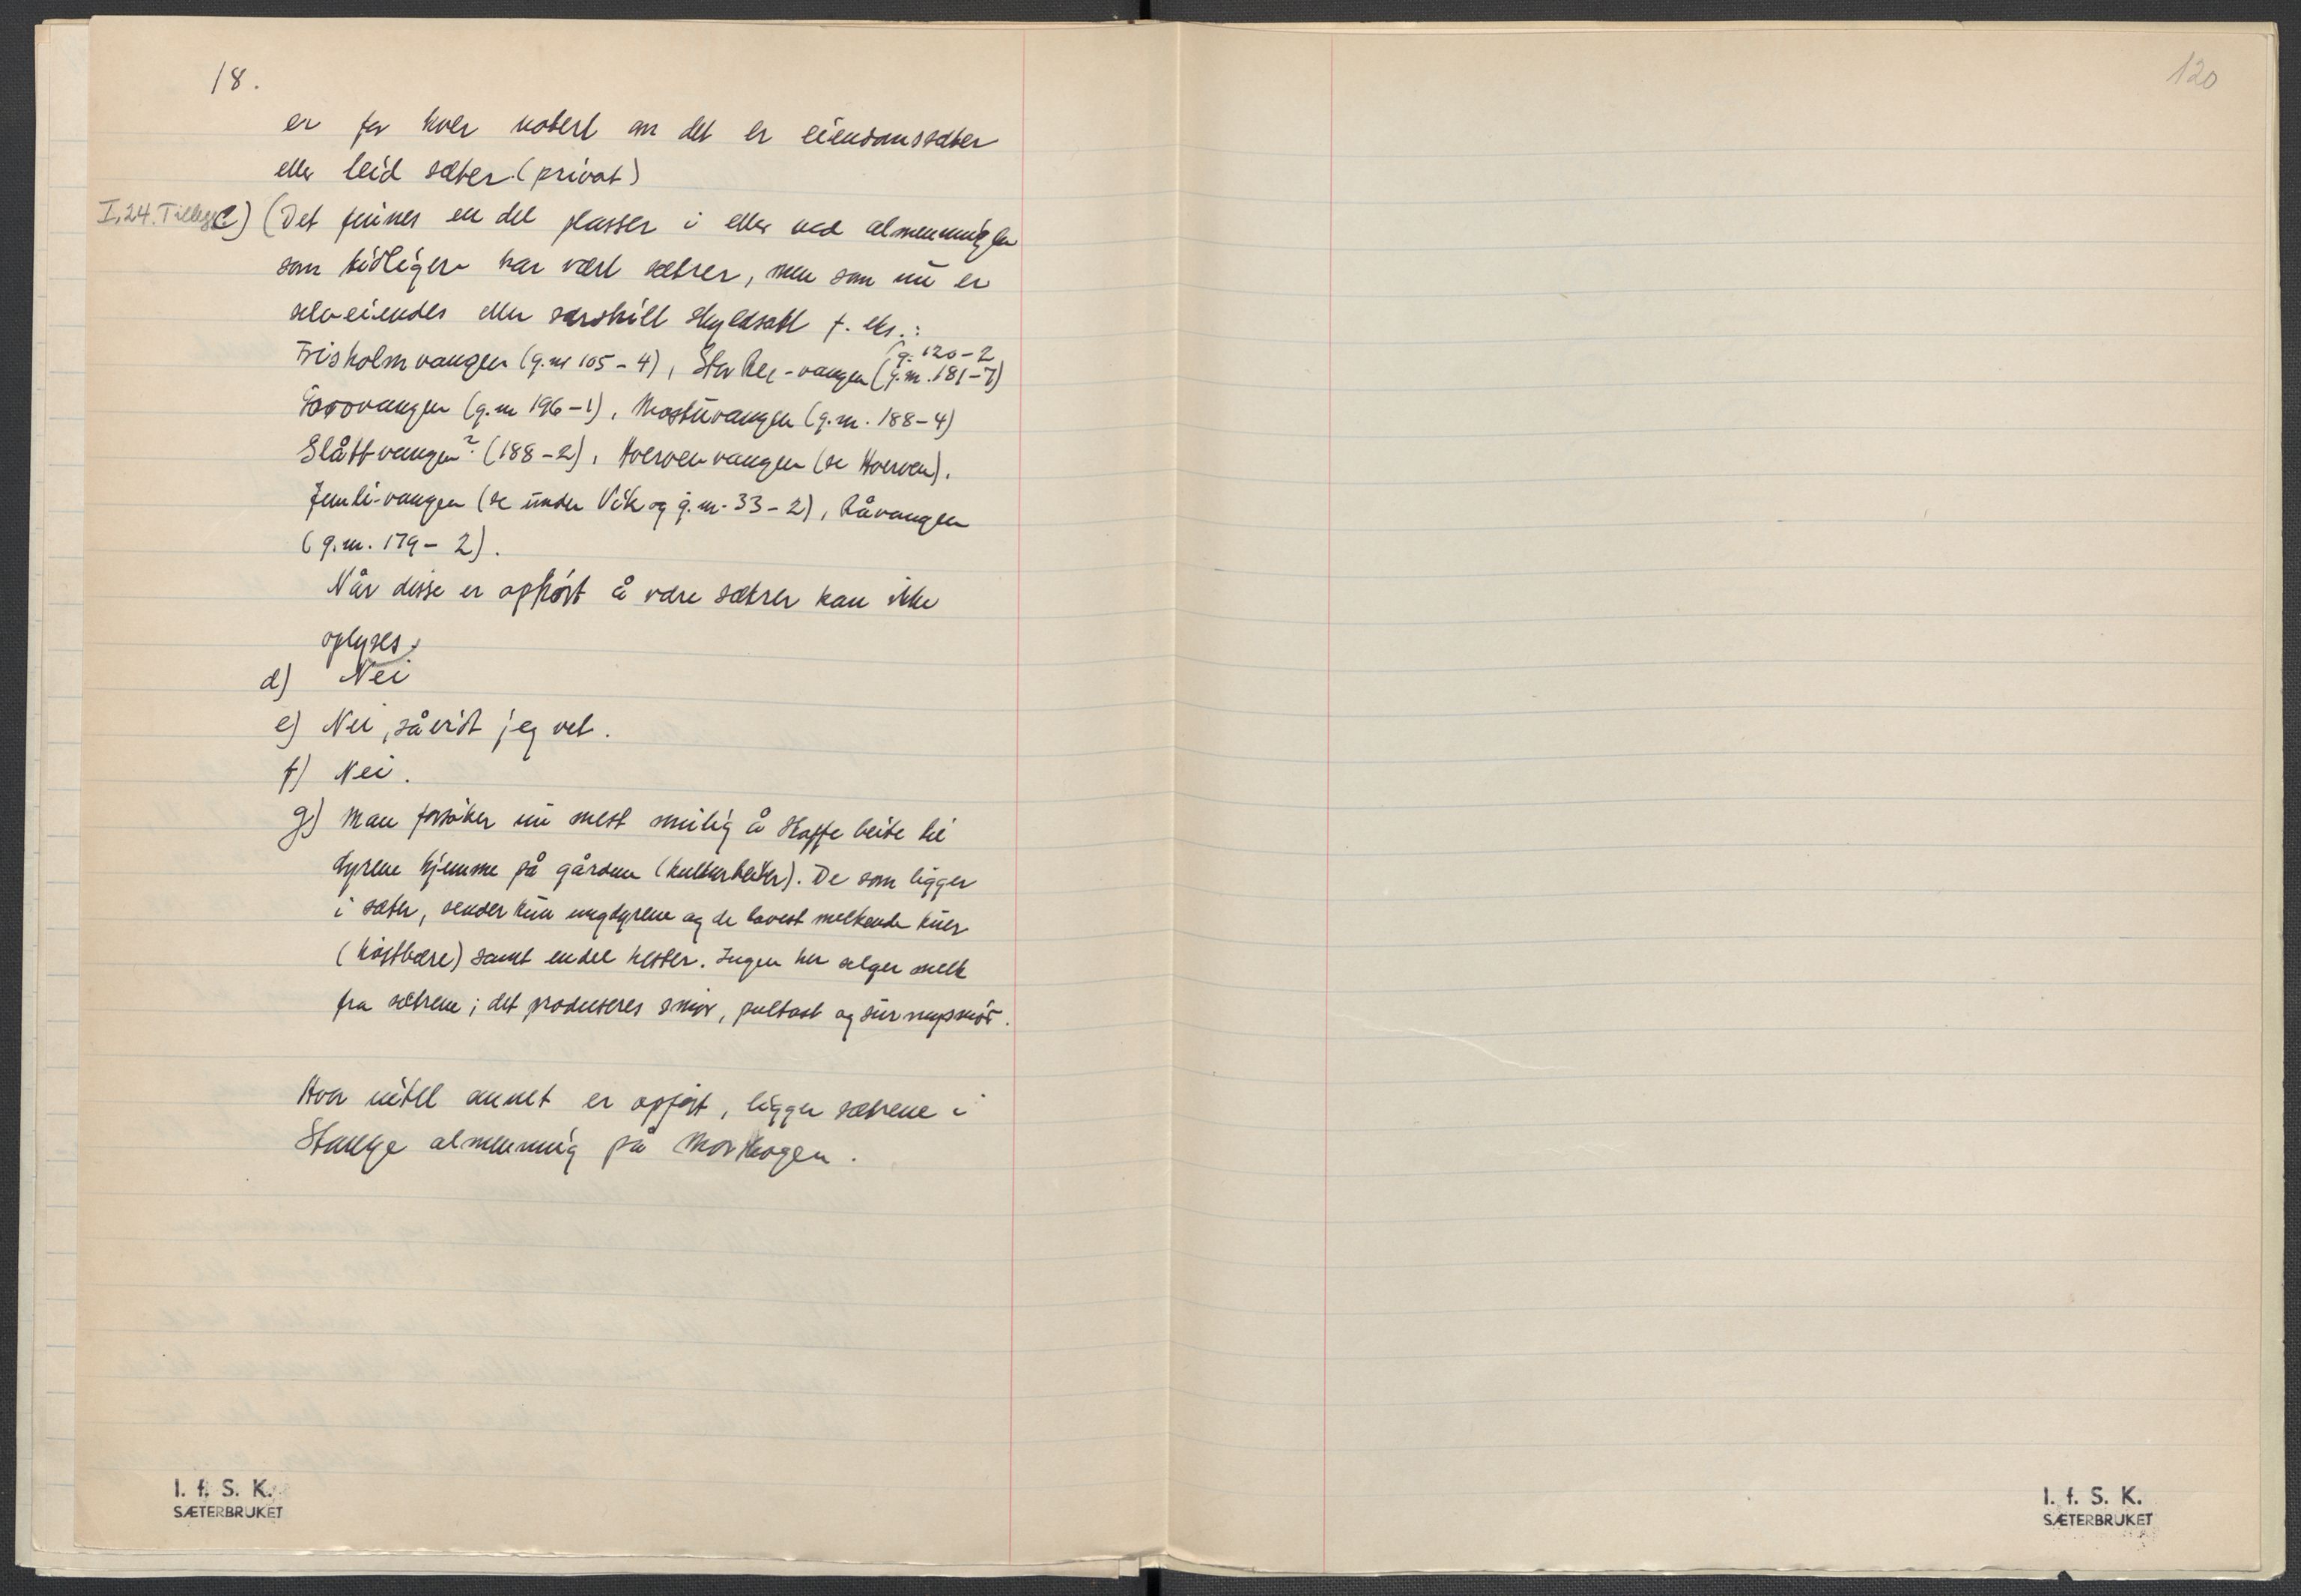 18.
120
er for hver notert om det er eiendomssæter
eller leid sæter (privat)
I, 24. Tillegg
c) (Det finnes en del plasser i eller ved almenningen
som tidligere har vært sætrer, men som nu er
selveiendes eller særskilt skyldsatt f. eks.:
Frisholmvangen (g.nr 105-4), (g. 120-2
(g.nr. 181-7)
(g.nr 196-1), Mostuvangen (g.nr. 188-4)
Slåttvangen? (188-2), Hvervenvangen (se Hverven),
Jemli-vangen (se under Vik og g.nr. 33-2), Råvangen
(g.nr. 179-2).
Når disse er ophört å være sætrer kan ikke
oplyses.
d) Nei
e) Nei, såvidt jeg vet.
f) Nei.
g) Man forsöker nu mest mulig å skaffe beite til
dyrene hjemme på gården (kulturbeiter). De som ligger
i sæter, sender kun ungdyrene og de lavest melkende kuer
(höstbære) samt endel hester. Ingen her selger melk
fra sætrene; det produseres smör, pultost og sur mysmör.
Hvor intet annet er opfört, ligger sætrene i
Stange almenning på Morskogen.
I. f. S. K.
SÆTERBRUKET
I. f. S. K.
SÆTERBRUKET